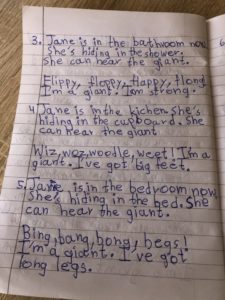 3. Jane is in the bathroom now
She's hiding in the shower.
She can hear the giant.
Flippy, floppy, flappy, flong
I'm a giant. I am strong.
4 Jane is in the kichen. She's
hiding in the cupboard. She
can hear the giant
Wiz, woz, woodle, weet! I'm a
giant. I've got big feet.
5. Jane is in the bedroom now
She's hiding in the bed. She
can hear the giant.
Bing, bang, bong, begs!
I'm a giant. I've got
long legs.
6